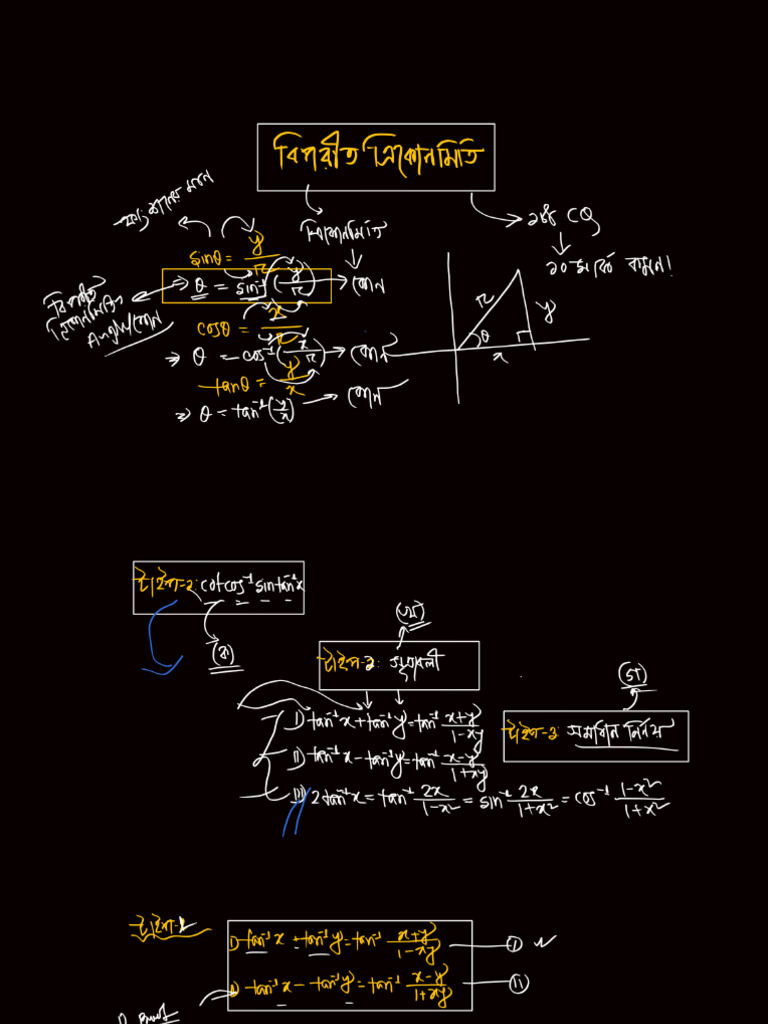 বিপরীত ত্রিকোনমিতি
ত্রিকোনমিতি
→ ১টা CQ
sinθ = y/r
⇒ θ = sin⁻¹(y/r) → কোন
বিপরীত
ত্রিকোনমিতিক
Angle/কোন
cosθ = x/r
⇒ θ = cos⁻¹(x/r) → কোন
tanθ = y/x
⇒ θ = tan⁻¹(y/x) → কোন
r
y
θ
x
টাইপ-১: cot cos⁻¹ sin tan⁻¹x
(ক)
(খ)
টাইপ-২: সূত্রাবলী
(গ)
টাইপ-৩: সমাধান নির্নয়
I) tan⁻¹x + tan⁻¹y = tan⁻¹ (x+y)/(1-xy)
II) tan⁻¹x - tan⁻¹y = tan⁻¹ (x-y)/(1+xy)
III) 2tan⁻¹x = tan⁻¹ 2x/(1-x²) = sin⁻¹ 2x/(1+x²) = cos⁻¹ (1-x²)/(1+x²)
টাইপ-২
I) tan⁻¹x + tan⁻¹y = tan⁻¹ (x+y)/(1-xy) — (I)
II) tan⁻¹x - tan⁻¹y = tan⁻¹ (x-y)/(1+xy) — (II)